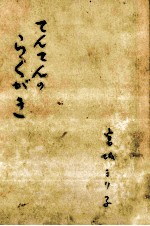 てんてんの
らくがき
宮城まり子